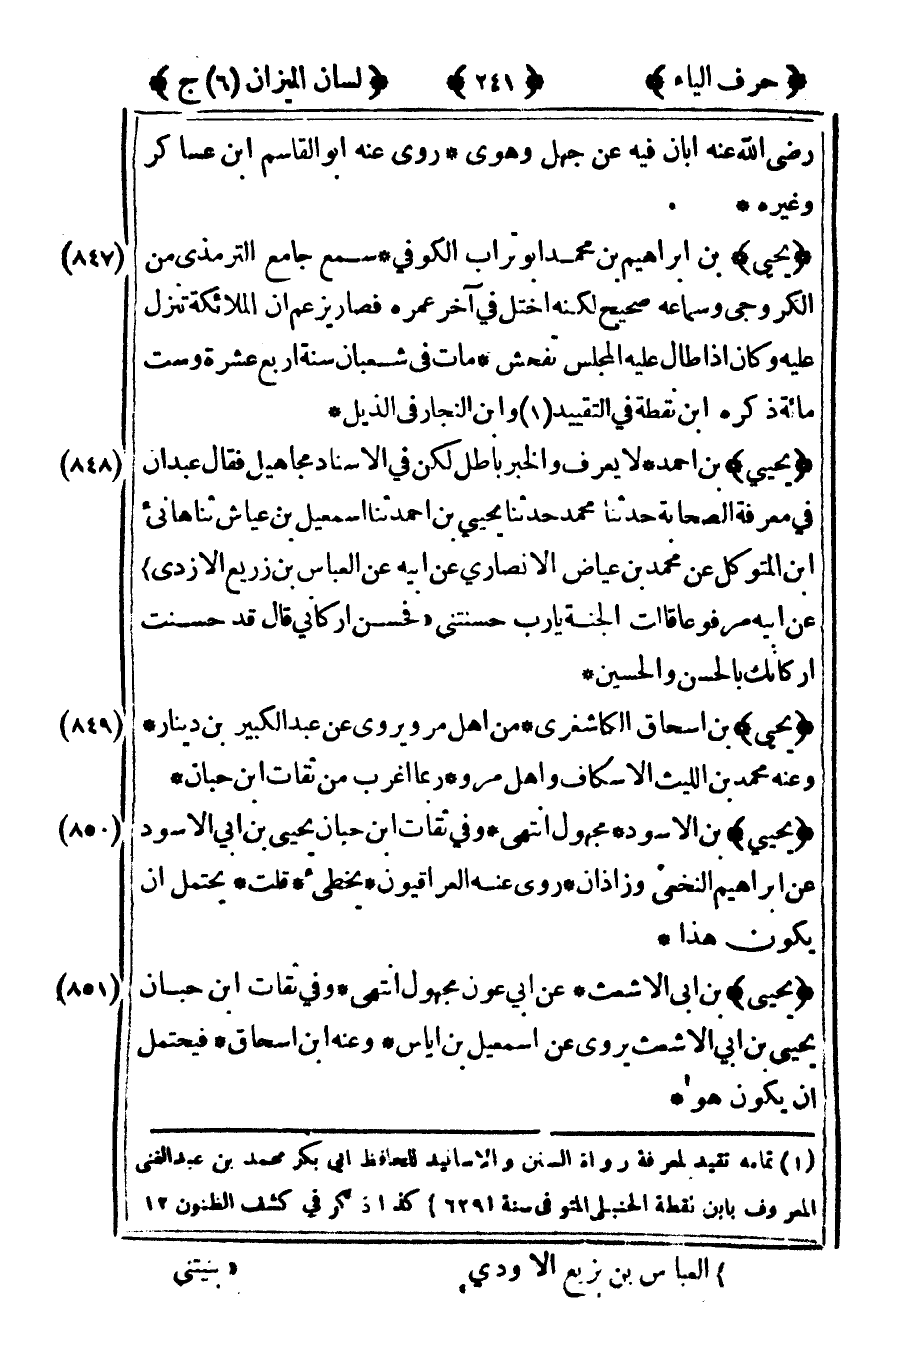 ﴿حرف الياء﴾ ﴿٢٤١﴾ ﴿لسان الميزان (٦) ج﴾
رضى الله عنه ابان فيه عن جهل وهوى * روى عنه ابو القاسم ابن عساكر
وغيره *
﴿يحيى﴾ بن ابراهيم بن محمد ابو تراب الكوفي * سمع جامع الترمذى من (٨٤٧)
الكروجى وسماعه صحيح لكنه اختل في آخر عمره فصار يزعم ان الملائكة تنزل
عليه وكان اذا طال عليه المجلس تفحش * مات فى شعبان سنة اربع عشرة وست
مائة ذكره ابن نقطة في التقييد (١) وابن النجار فى الذيل *
﴿يحيي﴾ بن احمد * لا يعرف والخبر باطل لكن في الاسناد مجاهيل فقال عبدان (٨٤٨)
في معرفة الصحابة حدثنا محمد حدثنا يحيي بن احمد ثنا اسمعيل بن عياش ثنا هانئ
ابن المتوكل عن محمد بن عياض الانصاري عن ابيه عن العباس بن زريع الازدى}
عن ابيه مرفوعا قاات الجنة يارب حسنتنى « فحسن اركاني قال قد حسنت
اركانك بالحسن والحسين *
﴿يحيى﴾ بن اسحاق الكاشغرى * من اهل مرو يروى عن عبد الكبير بن دينار * (٨٤٩)
وعنه محمد بن الليث الاسكاف واهل مرو * ربما اغرب من ثقات ابن حبان *
﴿يحيي﴾ بن الاسود * مجهول انتهى * وفي ثقات ابن حبان يحيى بن ابي الاسود (٨٥٠)
عن ابراهيم النخعىّ وزاذان * روى عنه العراقيون * يخطئ * قلت * يحتمل ان
يكون هذا *
﴿يحيى﴾ بن ابى الاشعث * عن ابي عون مجهول انتهى * وفي ثقات ابن حبان (٨٥١)
يحيى بن ابي الاشعث يروى عن اسمعيل بن اياس * وعنه ابن اسحاق * فيحتمل
ان يكون هو *
(١) تمامه تقييد لمعرفة رواة السنن والاسانيد للحافظ ابي بكر محمد بن عبد الغنى
المعروف بابن نقطة الحنبلى المتوفى سنة (٦٢٩) كذا ذكر في كشف الظنون ١٢
} العباس بن بزيع الاودي « بنيتني